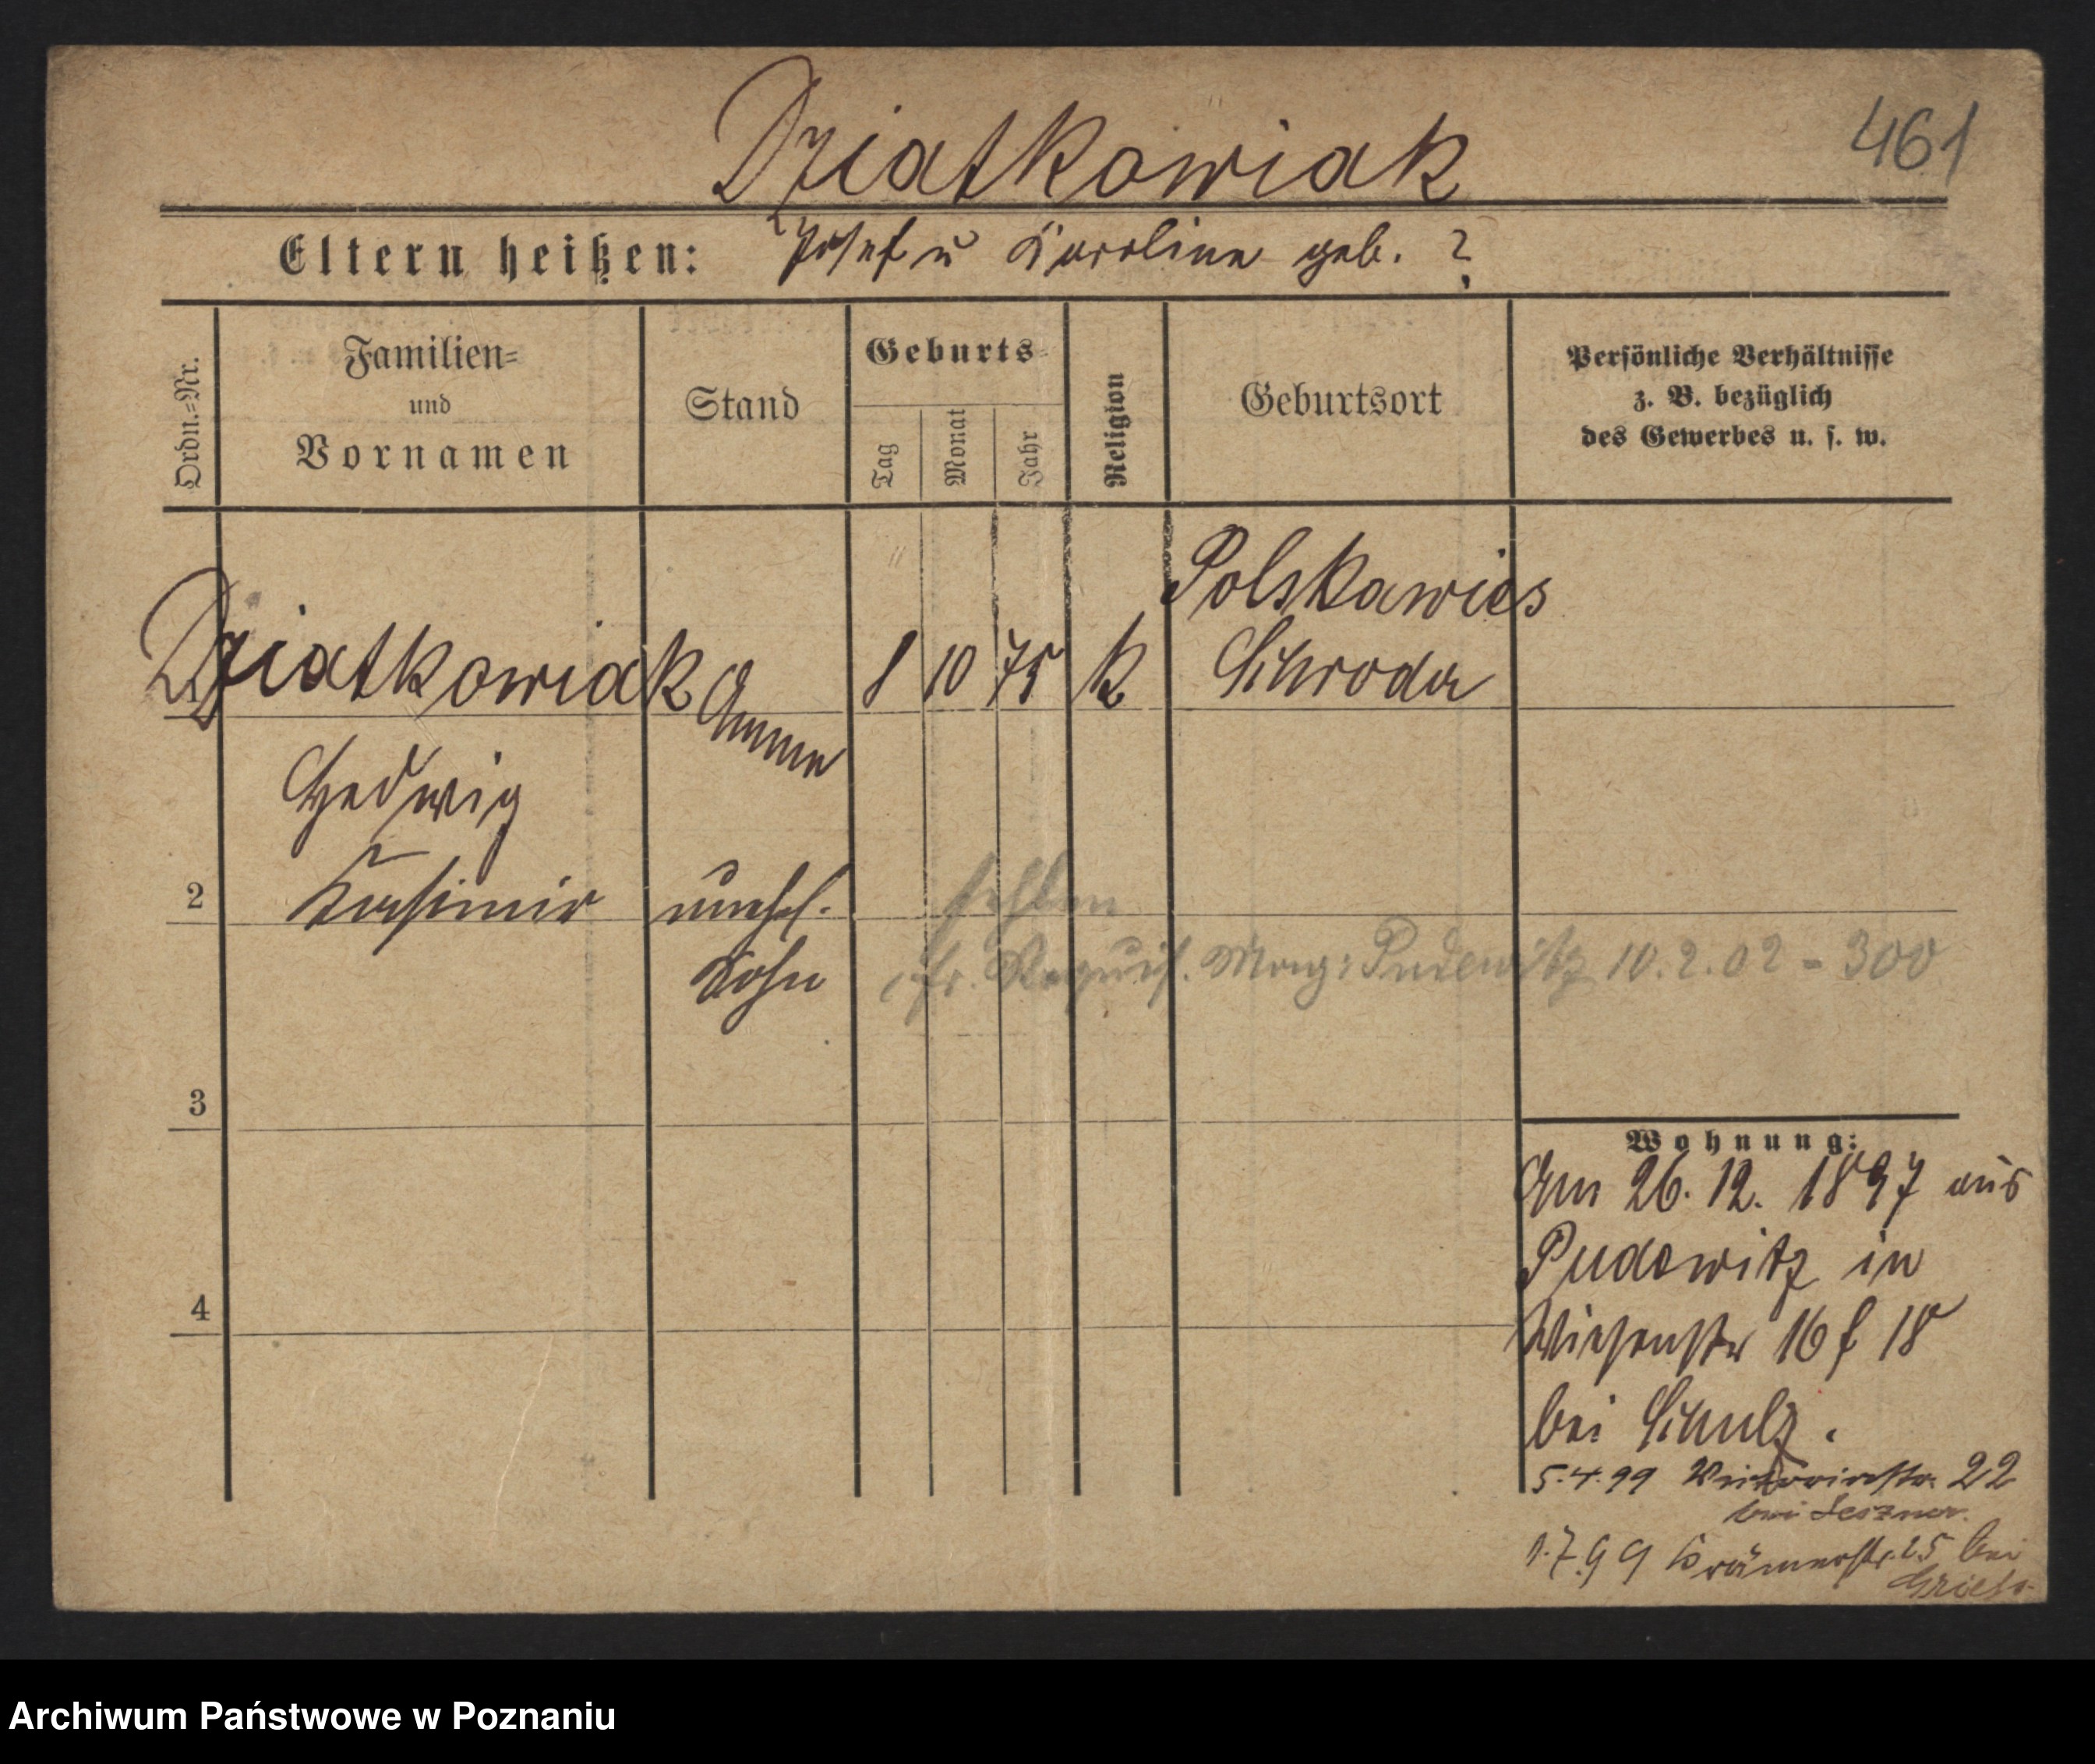 Dziatkowiak
461
Eltern heißen: Josef u Karoline geb. ?
Ordn.=Nr.
Familien=
und
Vornamen
Stand
Geburts=
Tag
Monat
Jahr
Religion
Geburtsort
Persönliche Verhältnisse
z. B. bezüglich
des Gewerbes u. s. w.
Polskawies
1 Dziatkowiak Amme 8 10 75 K Schroda
Hedwig
2 Kasimir unehel. fehlen
Sohn fr. Requis. Mag: Pudewitz 10.2.02 = 300
3
4
Wohnung:
Am 26. 12. 1897 aus
Pudewitz in
Wiesenstr 16 f 18
bei Schulz.
5.4.99 Victoriastr. 22
bei Leszner.
1.7.99 Krämerstr. 25 bei
Archiwum Państwowe w Poznaniu